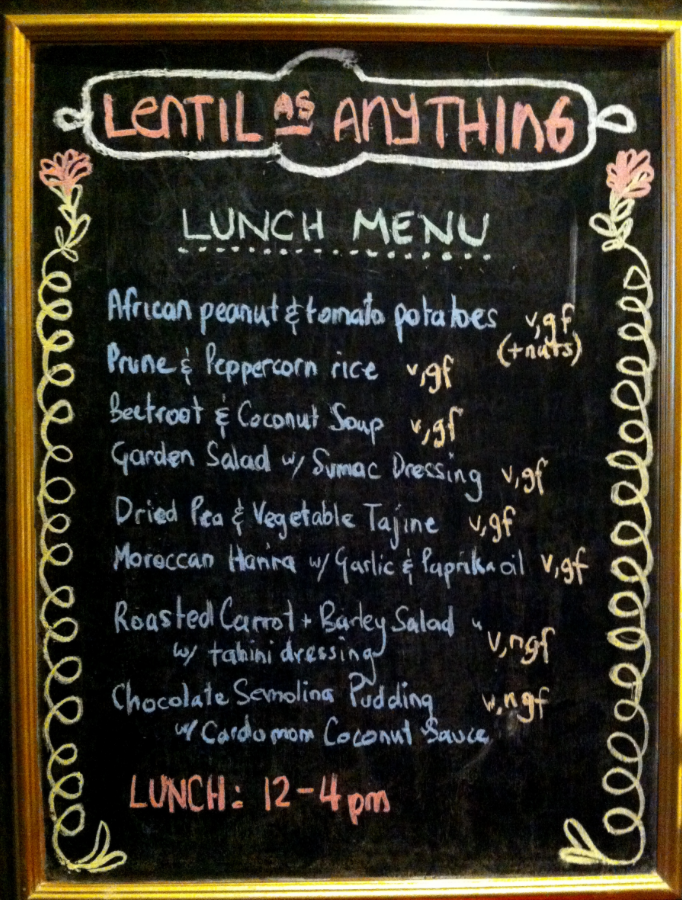 LENTIL AS ANYTHING
LUNCH MENU
African peanut & tomato potatoes v,gf
(+nuts)
Prune & Peppercorn rice v,gf
Beetroot & Coconut Soup v,gf
Garden Salad w/ Sumac Dressing v,gf
Dried Pea & Vegetable Tajine v,gf
Moroccan Harira w/ Garlic & Paprika oil v,gf
Roasted Carrot + Barley Salad
w/ tahini dressing v,ngf
Chocolate Semolina Pudding v,ngf
w/ Cardamom Coconut Sauce
LUNCH: 12-4pm